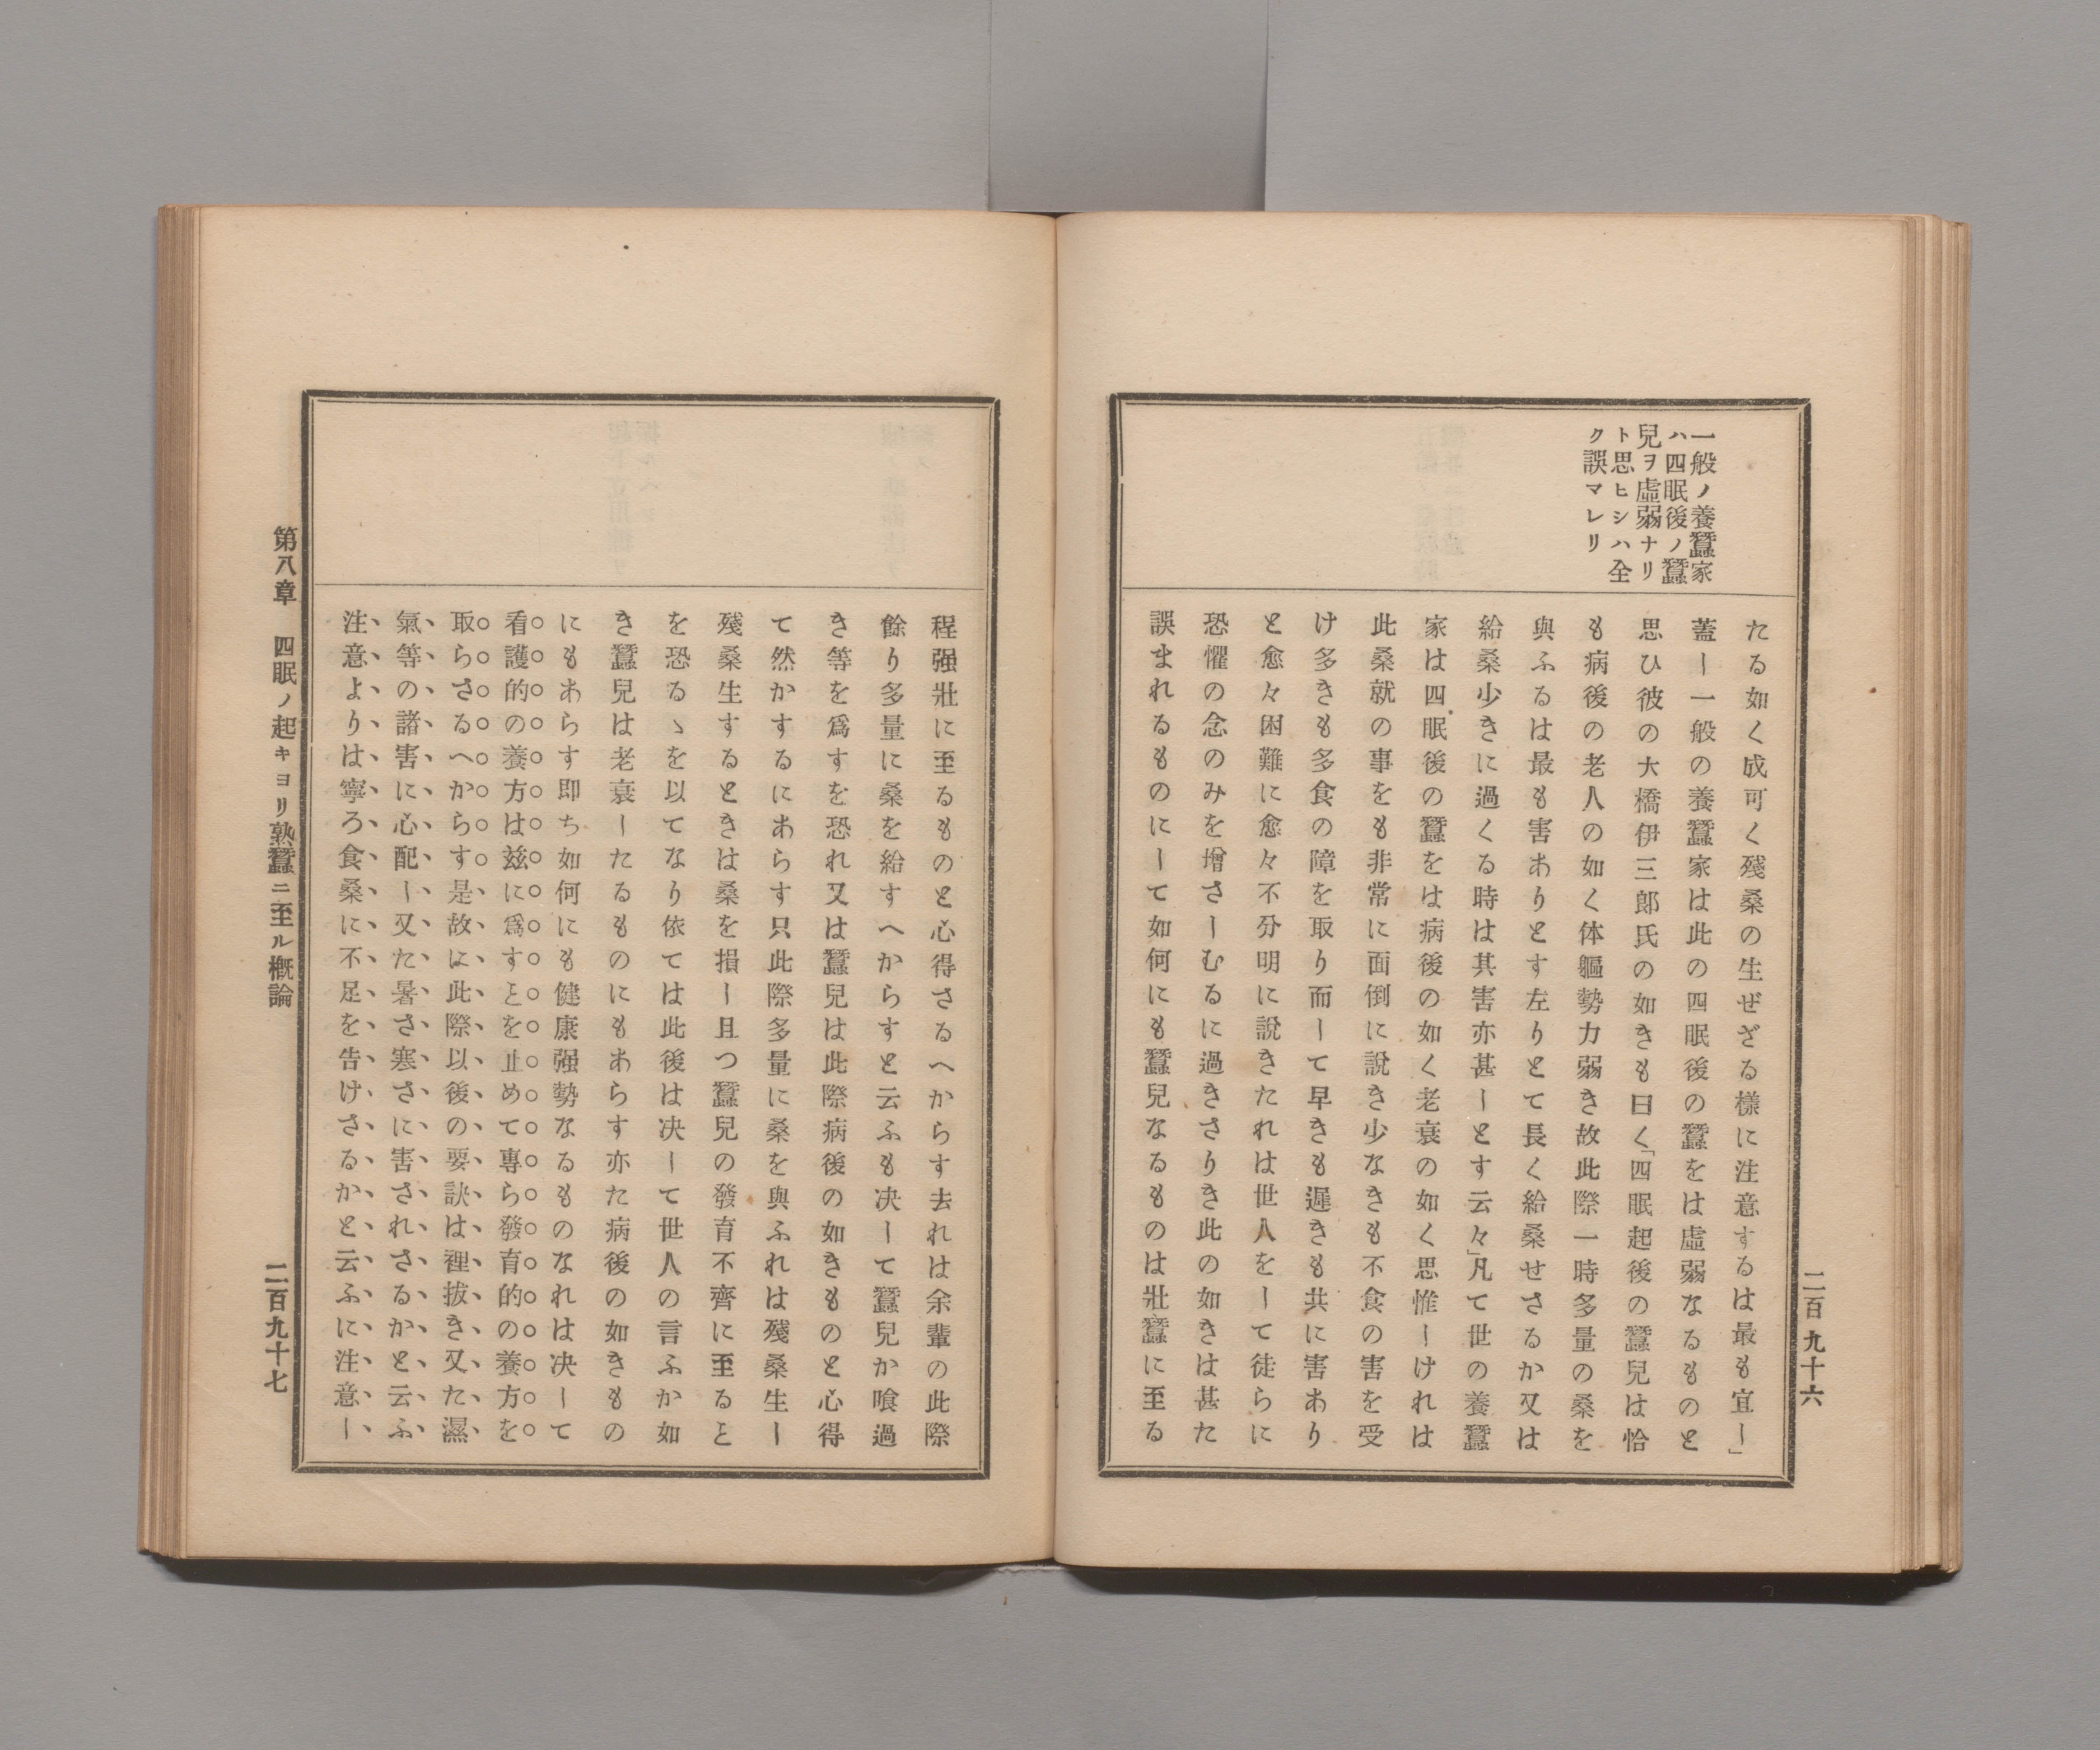 二百九十六
一般ノ養蠶家
ハ四眠後ノ蠶
兒ヲ虛弱ナリ
ト思ヒシハ全
ク誤マレリ
たる如く成可く殘桑の生ぜざる樣に注意するは最も宜し」
蓋し一般の養蠶家は此の四眠後の蠶をは虛弱なるものと
思ひ彼の大橋伊三郎氏の如きも曰く「四眠起後の蠶兒は恰
も病後の老人の如く体軀勢力弱き故此際一時多量の桑を
與ふるは最も害ありとす左りとて長く給桑せさるか又は
給桑少きに過くる時は其害亦甚しとす云々」凡て世の養蠶
家は四眠後の蠶をは病後の如く老衰の如く思惟しけれは
此桑就の事をも非常に面倒に説き少なきも不食の害を受
け多きも多食の障を取り而して早きも遲きも共に害あり
と愈々困難に愈々不分明に説きたれは世人をして徒らに
恐懼の念のみを增さしむるに過きさりき此の如きは甚た
誤まれるものにして如何にも蠶兒なるものは壯蠶に至る
程强壯に至るものと心得さるへからす去れは余輩の此際
餘り多量に桑を給すへからすと云ふも决して蠶兒か喰過
き等を爲すを恐れ又は蠶兒は此際病後の如きものと心得
て然かするにあらす只此際多量に桑を與ふれは殘桑生し
殘桑生するときは桑を損し且つ蠶兒の發育不齊に至ると
を恐るゝを以てなり依ては此後は决して世人の言ふか如
き蠶兒は老衰したるものにもあらす亦た病後の如きもの
にもあらす即ち如何にも健康强勢なるものなれは决して
看護的の養方は玆に爲すとを止めて專ら發育的の養方を
取らさるへからす是故に此際以後の要訣は裡拔き又た濕
氣等の諸害に心配し又た暑さ寒さに害されさるかと云ふ
注意よりは寧ろ食桑に不足を告けさるかと云ふに注意し
第八章　四眠ノ起キヨリ熟蠶ニ至ル概論
二百九十七